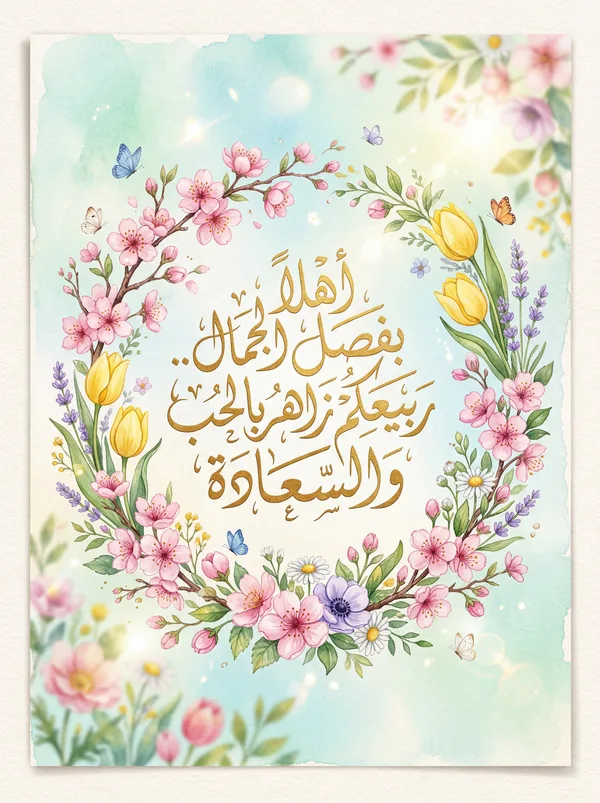 أهْلاً
بفَصَل الجَمَال..
رَبيَعَكِمُ زَاهرُ بالحُب
وَالسَّعَادَة